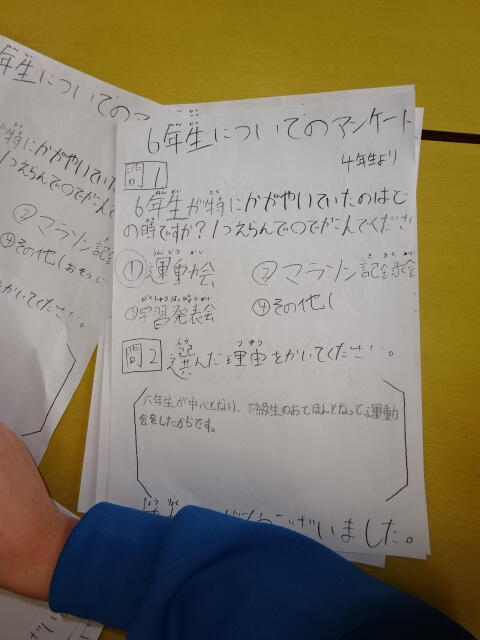 6年生についてのアンケート
4年生より
問1
6年生が特にかがやいていたのはど
の時ですか？1つえらんで○でかこんでくださ
①運動会
②マラソン記録会
③学習発表会
④その他(
問2 選んだ理由をかいてください。
六年生が中心となり、下級生のおてほんとなって運動
会をしたからです。
ございました。
年生についてのア
特にかがやいてい
1つえらんで○でかこん
②マラソン記
④その他(おそうじ
かいてください。